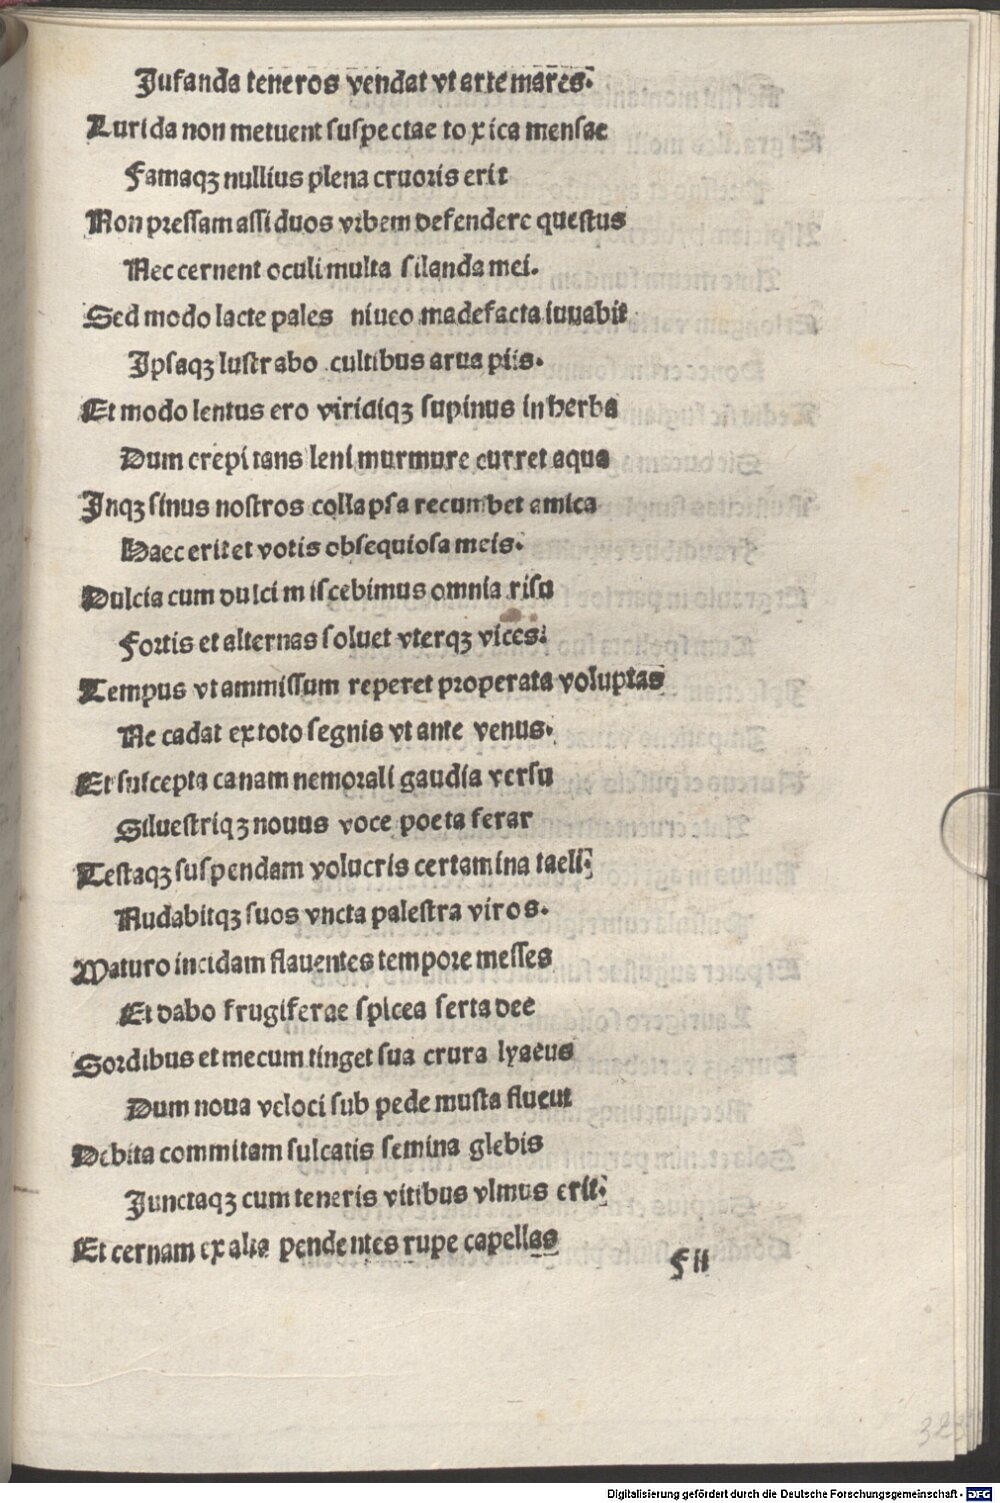 Jufanda teneros vendat vt arte mares.
Lurida non metuent suspectae toxica mensae
Famaqꝫ nullius plena cruoris erit
Non pressam assiduos vrbem defendere questus
Nec cernent oculi multa silanda mei.
Sed modo lacte pales niueo madefacta iuuabit
Ipsaqꝫ lustrabo cultibus arua piis.
Et modo lentus ero viridiqꝫ supinus in herba
Dum crepitans leni murmure curret aqua
Inqꝫ sinus nostros collapsa recumbet amica
Haec erit et votis obsequiosa meis.
Dulcia cum dulci miscebimus omnia risu
Fortis et alternas soluet vterqꝫ vices.
Tempus vt ammissum reperet properata voluptas
Ne cadat ex toto segnis vt ante venus.
Et suscepta canam nemorali gaudia versu
Siluestriqꝫ nouus voce poeta ferar
Testaqꝫ suspendam volucris certamina taeli.
Nudabitqꝫ suos vncta palestra viros.
Maturo incidam flauentes tempore messes
Et dabo frugiferae spicea serta dee
Sordibus et mecum tinget sua crura lyaeus
Dum noua veloci sub pede musta fluent
Debita commitam sulcatis semina glebis
Junctaqꝫ cum teneris vitibus vlmus erit.
Et cernam ex alta pendentes rupe capellas
f ii
323
Digitalisierung gefördert durch die Deutsche Forschungsgemeinschaft - DFG